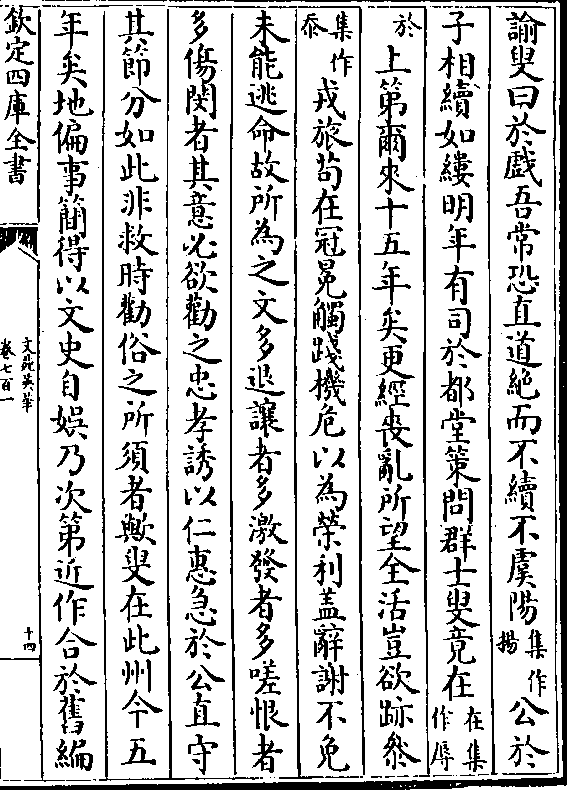 諭叟曰於戲吾常恐直道絶而不續不虞陽集作揚公於
子相續如縷明年有司於都堂策問群士叟竟在在集作辱
於上第爾來十五年矣更經喪亂所望全活豈欲跡參
集作忝戎旅苟在冠冕觸踐機危以為榮利蓋辭謝不免
未能逃命故所為之文多退讓者多激發者多嗟恨者
多傷閔者其意必欲勸之忠孝誘以仁惠急於公直守
其節分如此非救時勸俗之所須者歟叟在此州今五
年矣地偏事簡得以文史自娱乃次第近作合於舊編
欽定四庫全書
文苑英華
卷七百一
十四